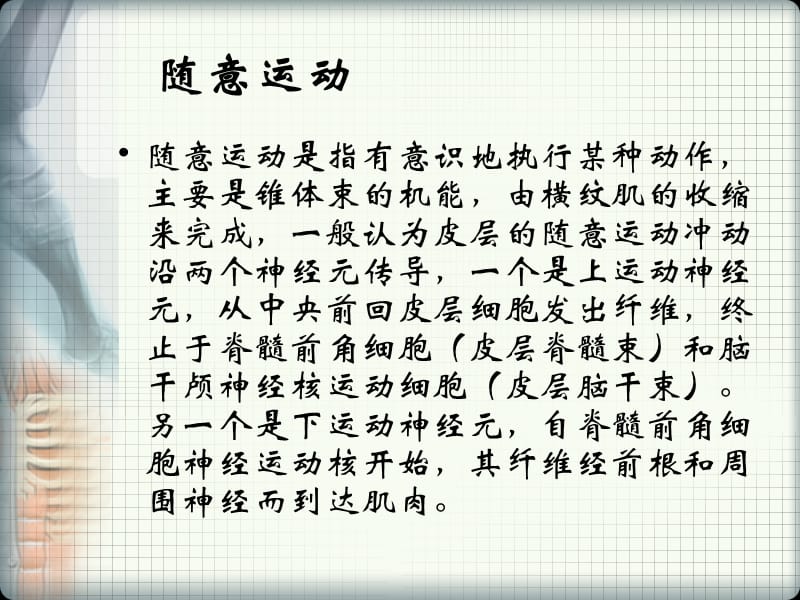 随意运动
• 随意运动是指有意识地执行某种动作，
主要是锥体束的机能，由横纹肌的收缩
来完成，一般认为皮层的随意运动冲动
沿两个神经元传导，一个是上运动神经
元，从中央前回皮层细胞发出纤维，终
止于脊髓前角细胞（皮层脊髓束）和脑
干颅神经核运动细胞（皮层脑干束）。
另一个是下运动神经元，自脊髓前角细
胞神经运动核开始，其纤维经前根和周
围神经而到达肌肉。